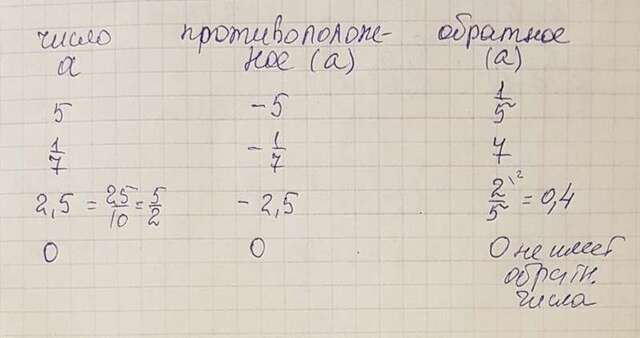 число противополож-ное (а) обратное
а (а)
5 -5 1/5
1/7 -1/7 7
2,5 = 25/10 = 5/2 -2,5 2\²/5 = 0,4
0 0 0 не имеет
обратн.
числа